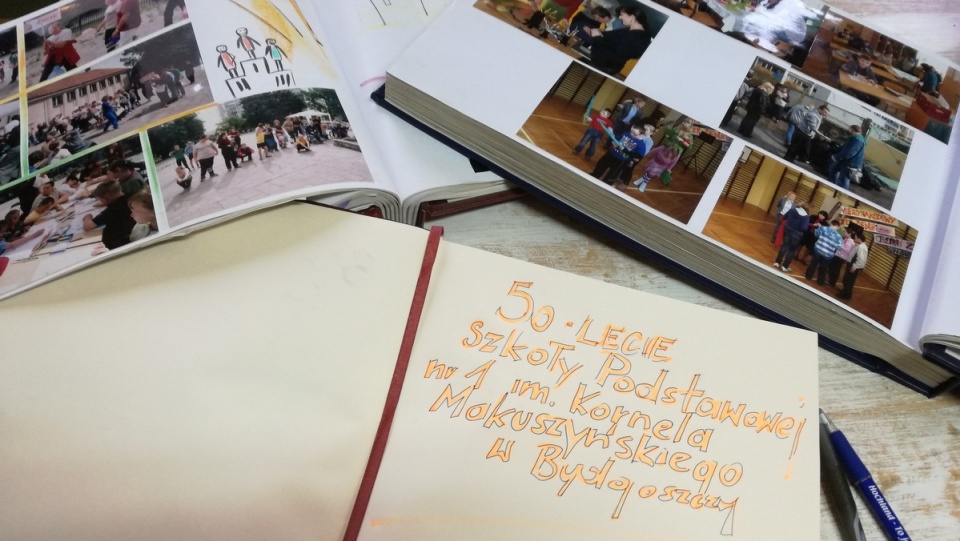 50-LECIE
Szkoły Podstawowej
nr 1 im. Kornela
Makuszyńskiego
w Bydgoszczy
Hochland - To j